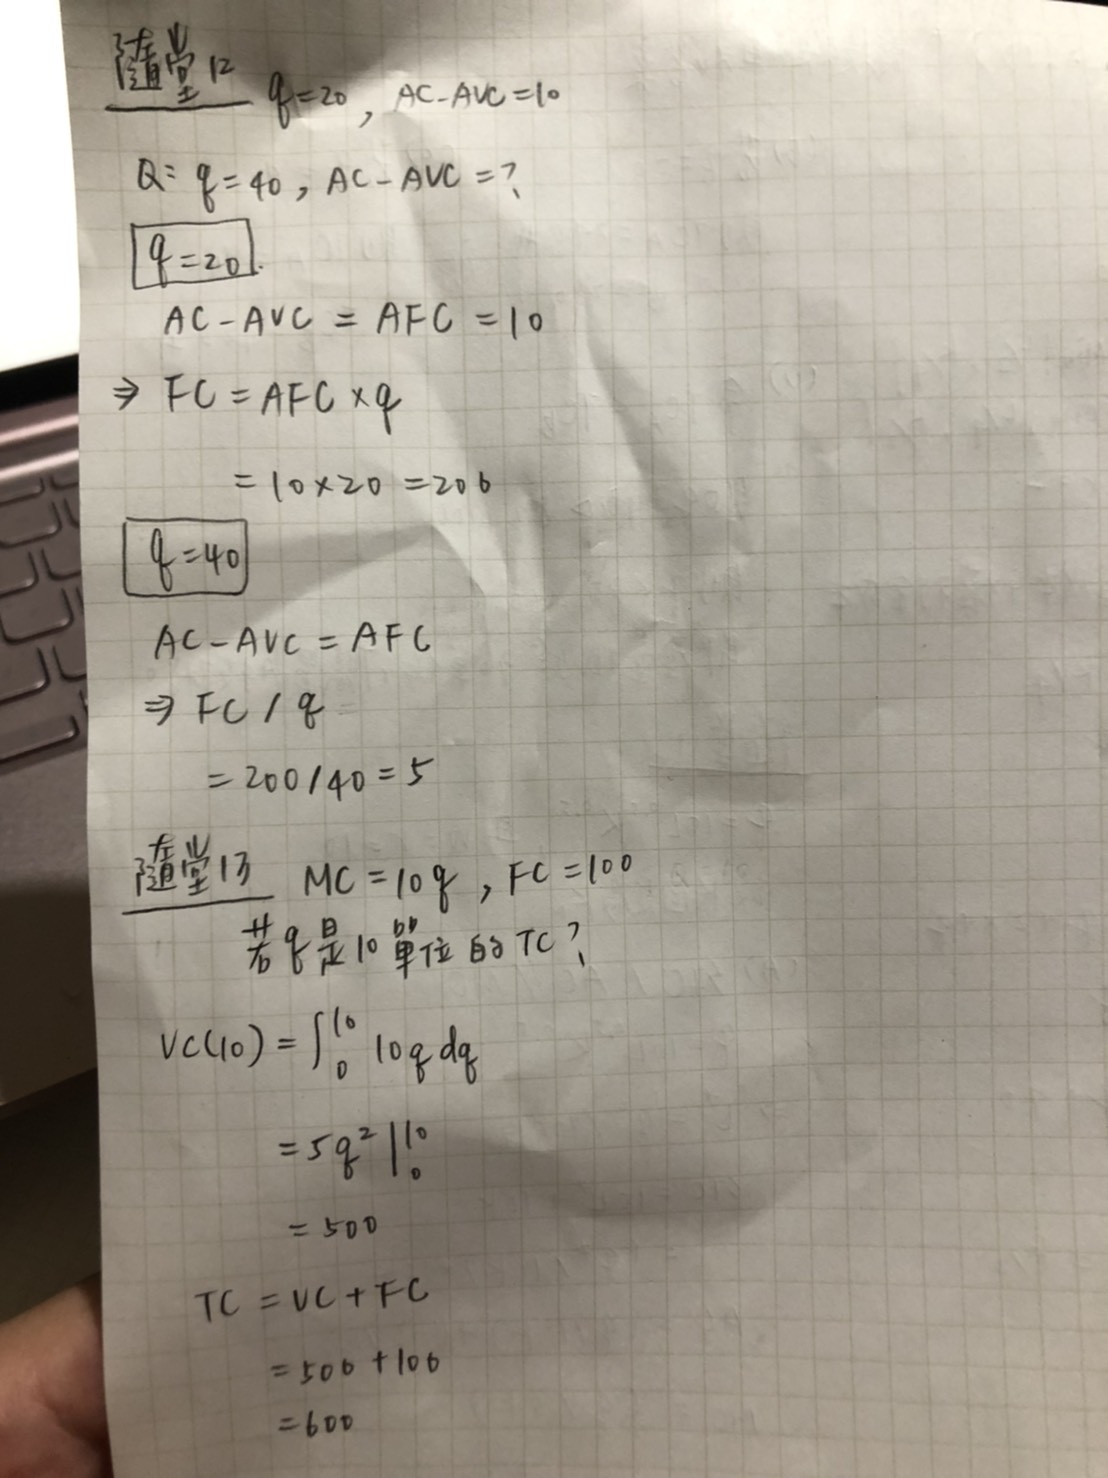 隨堂12 q=20, AC-AVC=10
Q: q=40, AC-AVC=?
q=20
AC-AVC = AFC = 10
⇒ FC = AFC × q
= 10×20 = 200
q=40
AC-AVC = AFC
⇒ FC / q
= 200/40 = 5
隨堂13 MC = 10q, FC = 100
若q是10單位的TC?
VC(10) = ∫₀¹⁰ 10q dq
= 5q² |₀¹⁰
= 500
TC = VC + FC
= 500 + 100
= 600